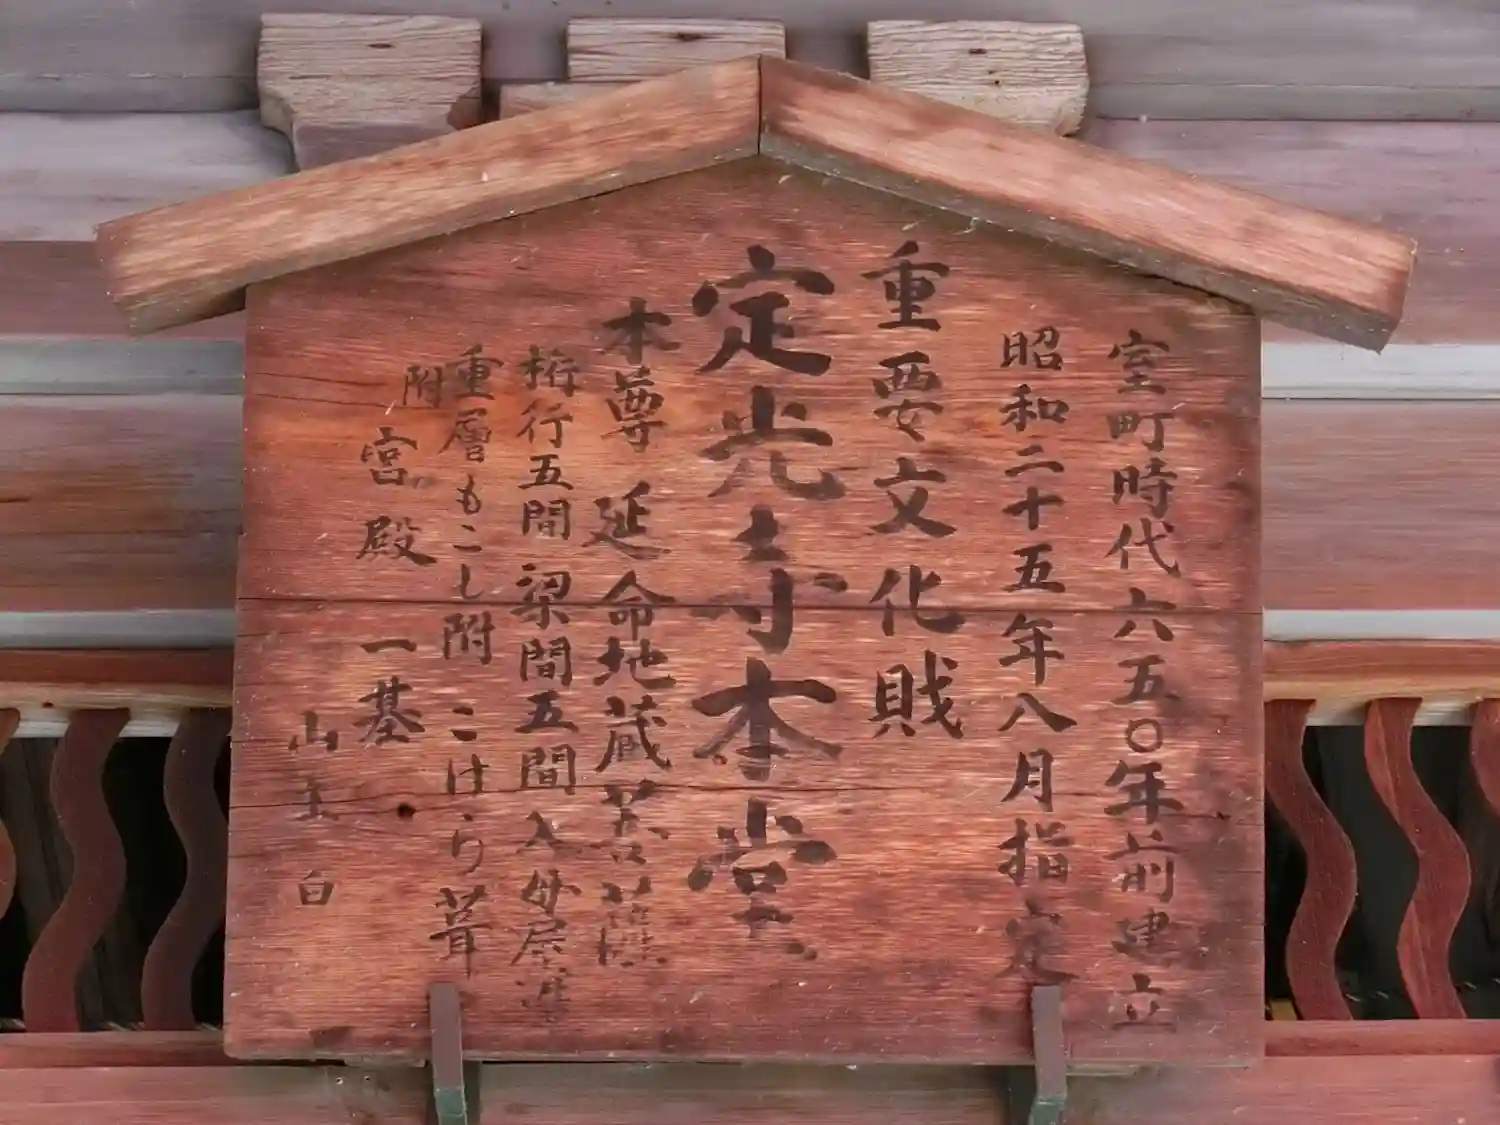 室町時代六五〇年前建立
昭和二十五年八月指定
重要文化財
定光寺本堂
本尊 延命地蔵菩薩
桁行五間 梁間五間 入母屋造
重層もこし附 こけら葺
附
宮殿 一基
山主 白